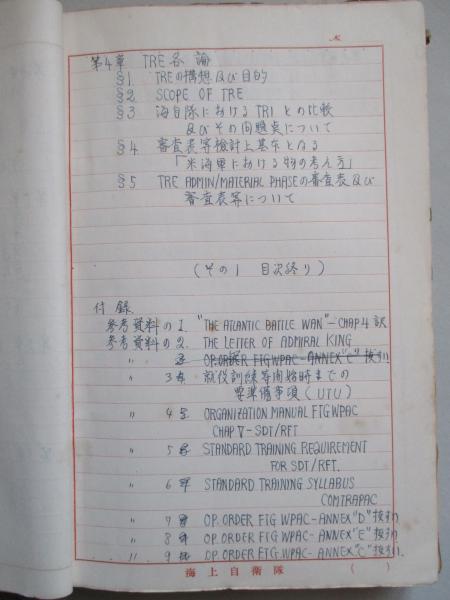 第4章 TRE各論
§1 TREの構想及び目的
§2 SCOPE OF TRE
§3 海自隊におけるTRIとの比較
及びその問題点について
§4 審査表等検討上基本となる
「米海軍における物の考え方」
§5 TRE ADMIN/MATERIAL PHASEの審査表及び
審査表等について
(その1 目次終り)
付録
参考資料の1. "THE ATLANTIC BATTLE WAN"-CHAP4訳
参考資料の2. THE LETTER OF ADMIRAL KING
〃 OP.ORDER FTG WPAC-ANNEX"C"抜刷
〃 3 就役訓練等開始時までの
要準備事項(UTU)
〃 4 ORGANIZATION MANUAL FTG WPAC
CHAP V-SDT/RFT
〃 5 STANDARD TRAINING REQUIREMENT
FOR SDT/RFT.
〃 6 STANDARD TRAINING SYLLABUS
COMTRAPAC
〃 7 OP.ORDER FTG WPAC-ANNEX"D"抜刷
〃 8 OP.ORDER FTG WPAC-ANNEX"E"抜刷
〃 9 OP.ORDER FTG WPAC-ANNEX"C"抜刷.
海上自衛隊 ( )